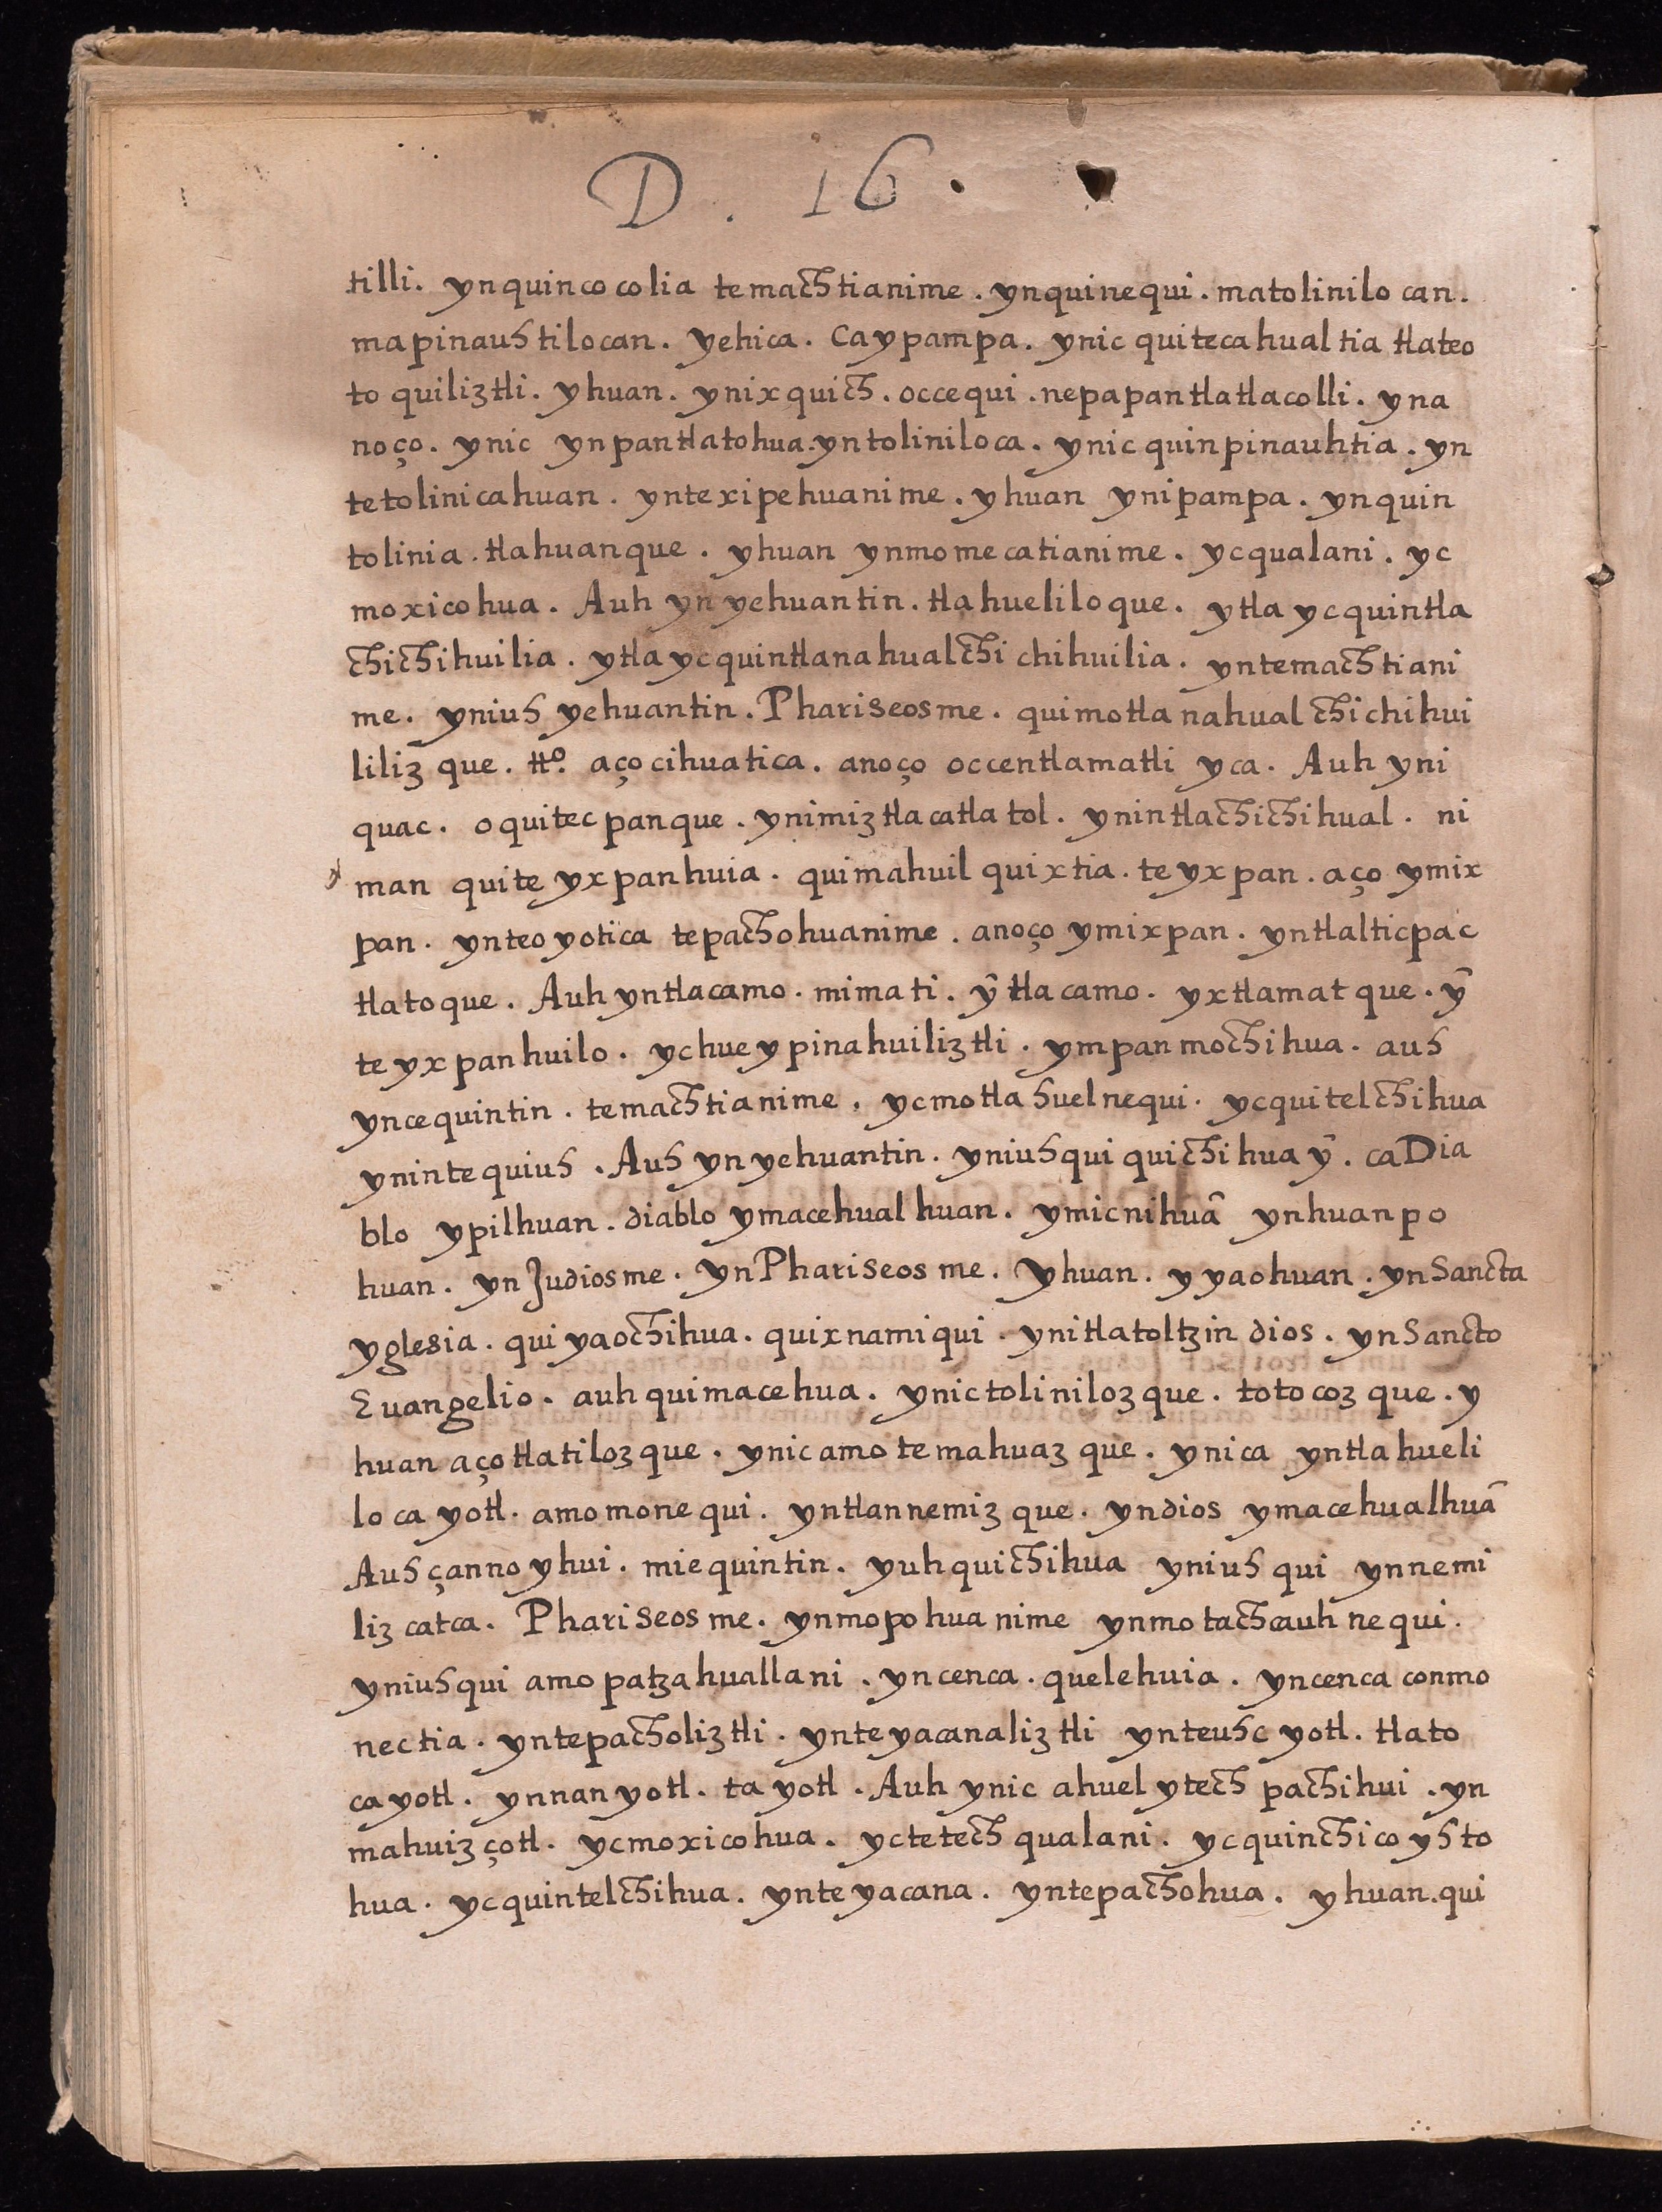 D . 16 .
tilli. ynquincocolia temachtianime. ynquinequi. matolinilo can.
mapinauhtilocan. yehica. Caypampa. ynic quitecahualtia tlateo
to quiliztli. yhuan. ynixquich. occequi. nepapantlatlacolli. yna
noço. ynic ynpantlatohua. yntoliniloca. ynic quinpinauhtia. yn
tetolinicahuan. yntexipehuanime. yhuan ynipampa. ynquin
tolinia. tlahuanque. yhuan ynmomecatianime. ycqualani. yc
moxicohua. Auh yn yehuantin. tlahueliloque. ytla ycquintla
chichihuilia. ytla ycquintlanahualchi chihuilia. yntemachtiani
me. yniuh yehuantin. Phariseosme. quimotlanahualchichihui
liliz que. ttº. aço cihuatica. anoço occentlamatli yca. Auh yni
quac. oquitecpanque. ynimiztlacatlatol. ynintlachichihual. ni
man quiteyxpanhuia. quimahuilquixtia. teyxpan. aço ymix
pan. ynteoyotica tepachohuanime. anoço ymixpan. yntlalticpac
tlatoque. Auh yntlacamo. mimati. ȳ tlacamo. yxtlamatque. ȳ
teyxpanhuilo. ychueypinahuiliztli. ympanmochihua. auh
yncequintin. temachtianime. ycmotlahuelnequi. ycquitelchihua
ynintequiuh. Auh yn yehuantin. yniuhqui quichihua ȳ. caDia
blo ypilhuan. diablo ymacehualhuan. ymicnihuā ynhuanpo
huan. yn Judiosme. yn Phariseosme. yhuan. yyaohuan. ynSancta
yglesia. quiyaochihua. quixnamiqui. ynitlatoltzin dios. ynSancto
Euangelio. auh quimacehua. ynictoliniloz que. totocoz que. y
huan aço tlatilozque. ynicamo temahuaz que. ynica yntlahueli
locayotl. amomonequi. yntlannemiz que. yndios ymacehualhuā
Auh çannoyhui. miequintin. yuhquichihua yniuhqui ynnemi
liz catca. Phariseosme. ynmopohuanime ynmotachcauhnequi.
yniuhqui amo patzahuallani. yncenca. quelehuia. yncenca conmo
nectia. yntepacholiztli. ynteyacanaliztli ynteuhcyotl. tlato
cayotl. ynnanyotl. tayotl. Auh ynic ahuel ytech pachihui. yn
mahuizçotl. ycmoxicohua. yctetech qualani. ycquinchicoyhto
hua. ycquintelchihua. ynteyacana. yntepachohua. yhuan. qui